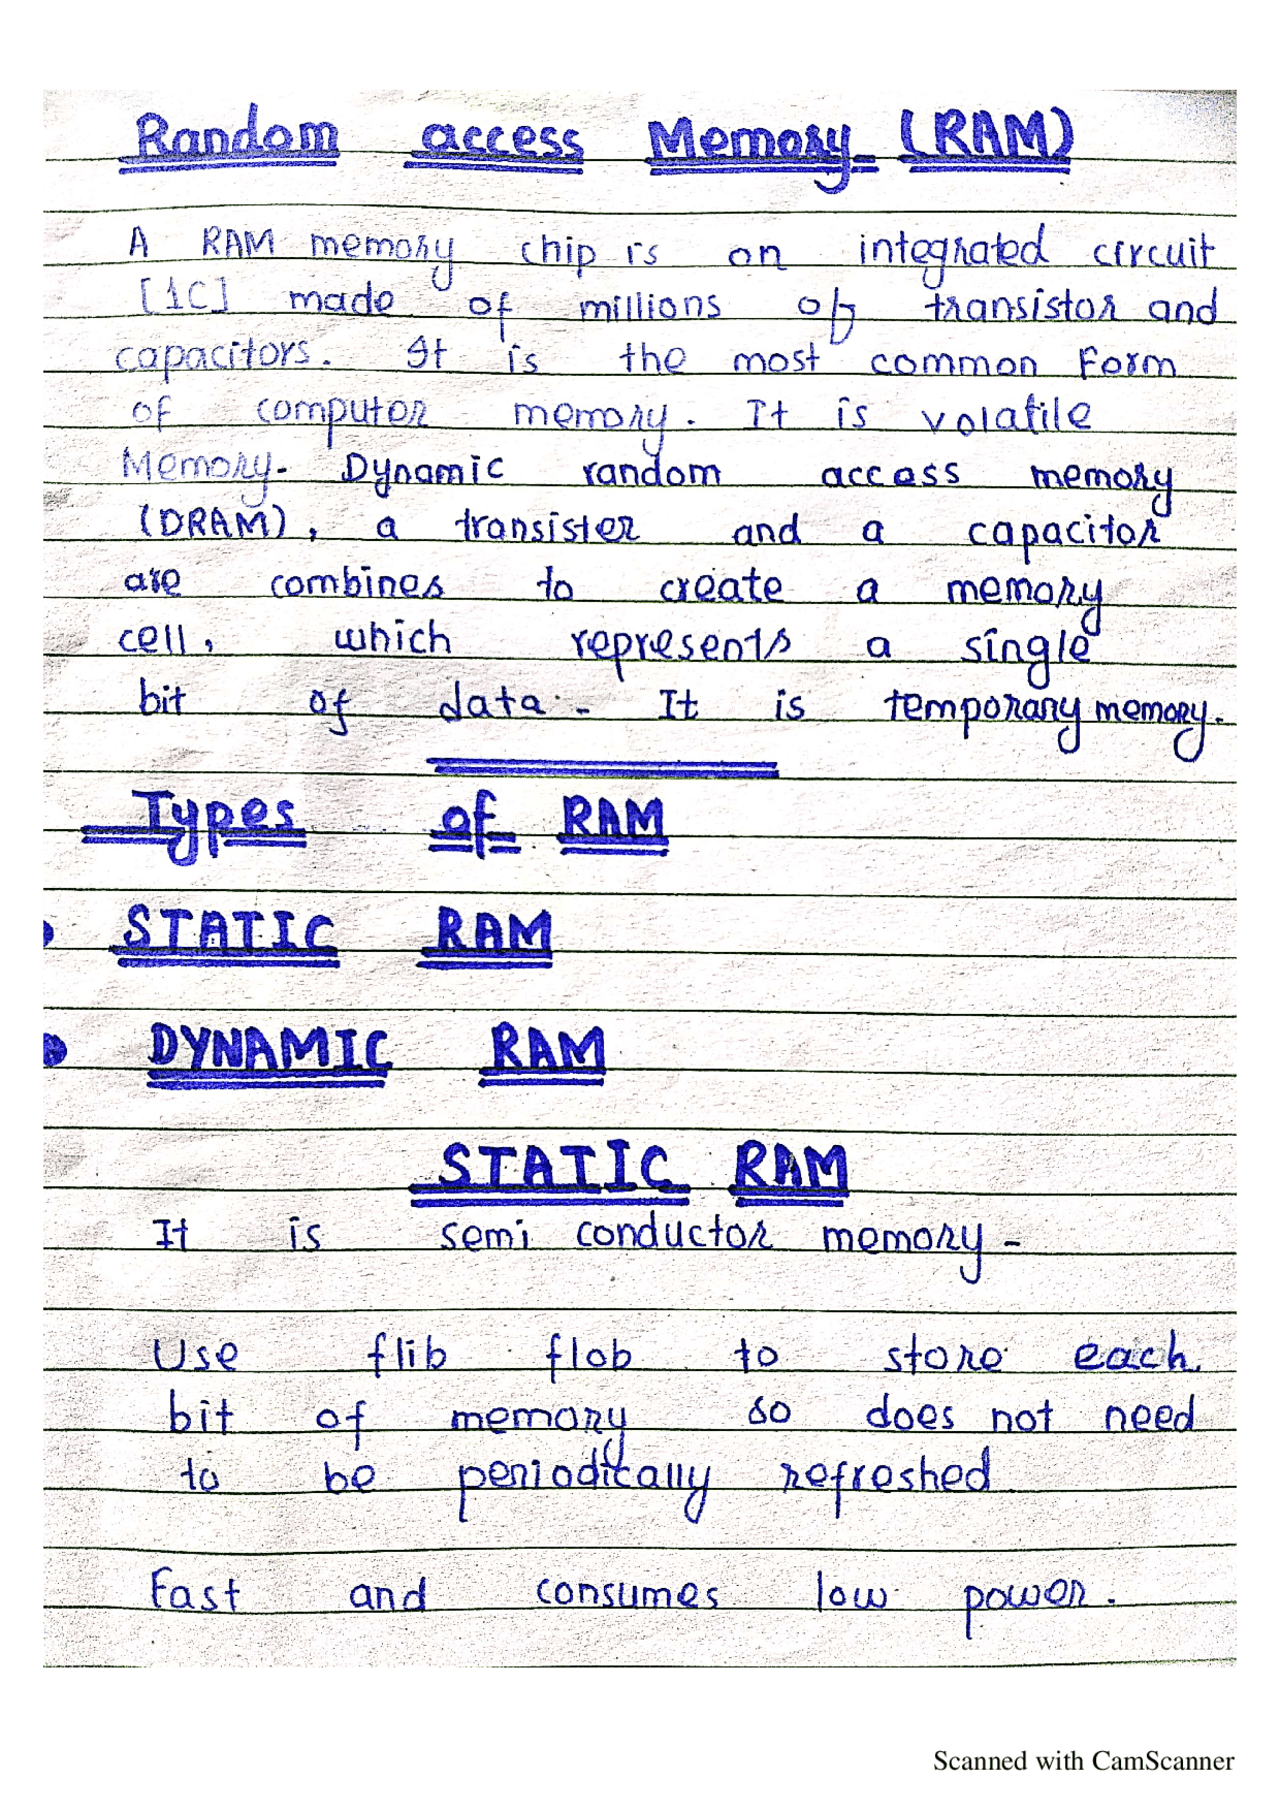 Random access Memory (RAM)
A RAM memory chip is on integrated circuit
[1C] made of millions of transistor and
capacitors. It is the most common Form
of computer memory. It is volatile
Memory- Dynamic random access memory
(DRAM), a transister and a capacitor
are combines to create a memory
cell, which represents a single
bit of data.- It is temporary memory.
Types of RAM
STATIC RAM
DYNAMIC RAM
STATIC RAM
It is semi conductor memory-
Use flib flob to store each.
bit of memory so does not need
to be periodically refreshed
Fast and consumes low power.
Scanned with CamScanner